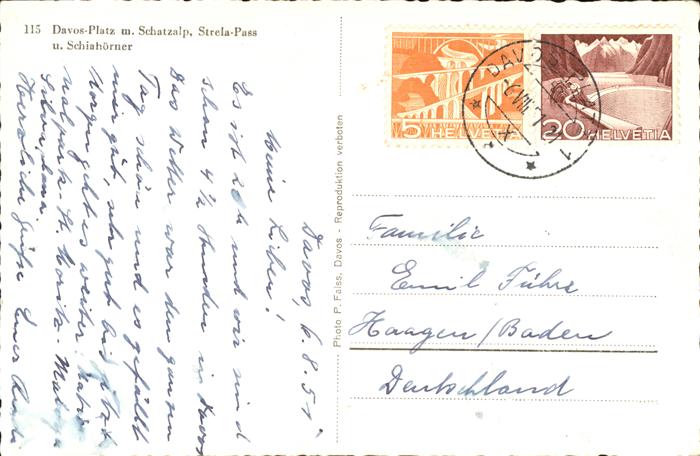 115 Davos-Platz m. Schatzalp, Strela-Pass
u. Schiahörner
Davos, 6.8.51
Meine Lieben!
Es ist 20 h und wir sind
schon 4 1/2 Stunden in Davos
Das Wetter war den ganzen
Tag schön und es gefällt
mir gut, sehr gut bis jetzt.
Morgen geht es weiter: Natio-
nalpark - St. Moritz - Maloja
Silvaplana.
Herzliche Grüße Euer
Photo P. Faiss, Davos - Reproduktion verboten
DAVOS
5 HELVETIA
20 HELVETIA
Familie
Emil Führe
Haagen/Baden
Deutschland